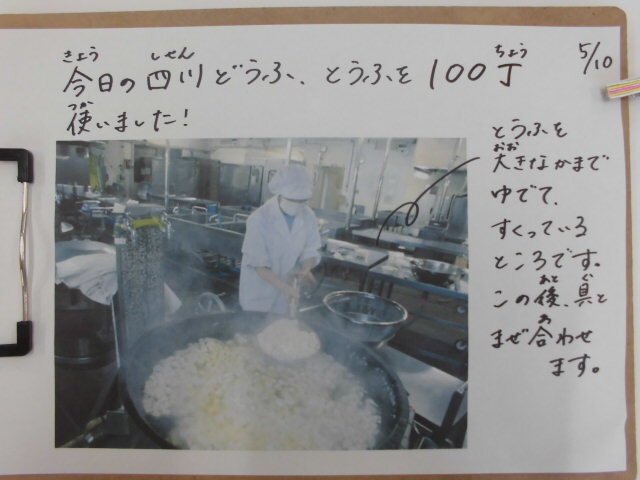 きょう しせん ちょう 5/10
今日の四川どうふ、とうふを100丁
つか
使いました!
とうふを
おお
大きなかまで
ゆでて、
すくっている
ところです。
あと ぐ
この後、具と
あ
まぜ合わせ
ます。